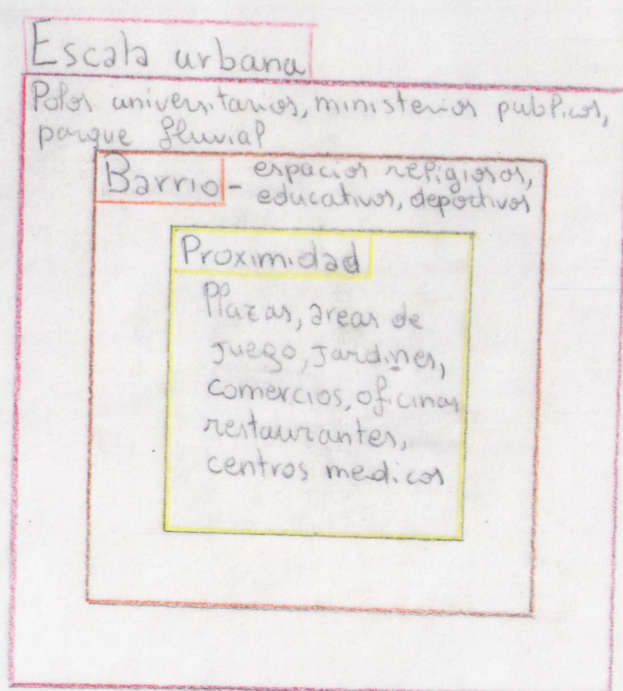 Escala urbana
Polos universitarios, ministerios publicos,
parque fluvial
Barrio - espacios religiosos,
educativos, deportivos
Proximidad
Plazas, areas de
juego, jardines,
comercios, oficinas
restaurantes,
centros medicos